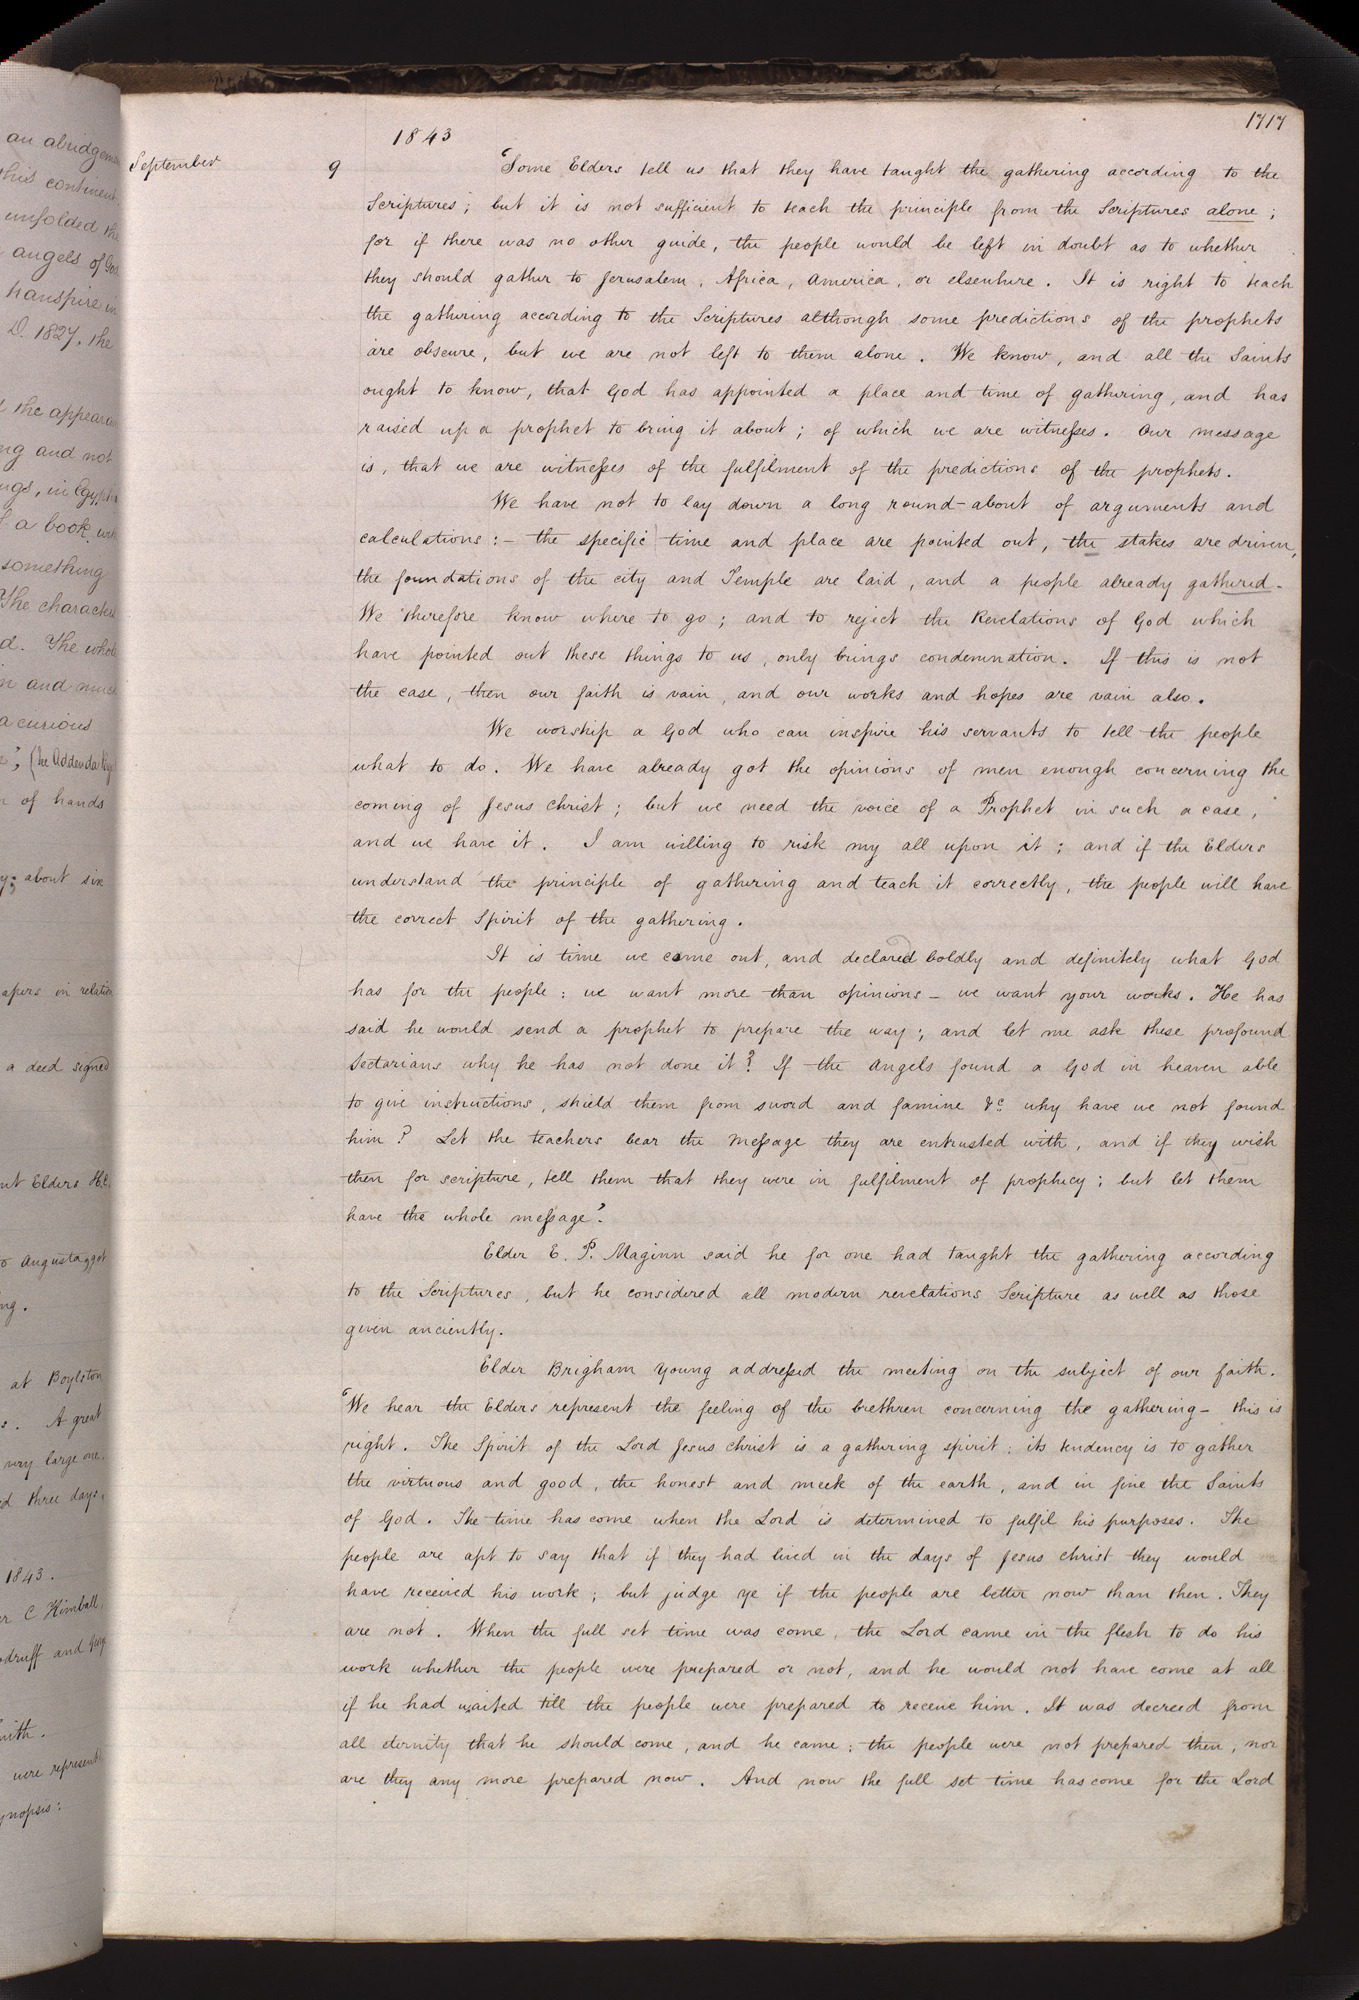 an abridgem
his continent
unfolded the
angels of God
transpire in
D. 1827, the
the appeara
ng and not
ngs, in Egypt
f a book, with
something
The character
d. The whole
n and much
a curious
e"; (the Addenda
n of hands
y; about six
apers in relation
a deed signed
nt Elders H.C.
o Augusta 99
ng.
at Boylston
s. A great
very large one.
d three days,
1843.
er C Kimball,
odruff and Geo
mith.
were represent
ynopsis:
1717
1843
September 9 "Some Elders tell us that they have taught the gathering according to the
Scriptures; but it is not sufficient to teach the principle from the Scriptures alone;
for if there was no other guide, the people would be left in doubt as to whether
they should gather to Jerusalem, Africa, America, or elsewhere. It is right to teach
the gathering according to the Scriptures although some predictions of the prophets
are obscure, but we are not left to them alone. We know, and all the Saints
ought to know, that God has appointed a place and time of gathering, and has
raised up a prophet to bring it about; of which we are witnesses. Our message
is, that we are witnesses of the fulfilment of the predictions of the prophets.
We have not to lay down a long round-about of arguments and
calculations:- the specific time and place are pointed out, the stakes are driven,
the foundations of the city and Temple are laid, and a people already gathered.
We therefore know where to go; and to reject the Revelations of God which
have pointed out these things to us, only brings condemnation. If this is not
the case, then our faith is vain, and our works and hopes are vain also.
We worship a God who can inspire his servants to tell the people
what to do. We have already got the opinions of men enough concerning the
coming of Jesus Christ; but we need the voice of a Prophet in such a case,
and we have it. I am willing to risk my all upon it; and if the Elders
understand the principle of gathering and teach it correctly, the people will have
the correct Spirit of the gathering.
It is time we came out, and declared boldly and definitely what God
has for the people: we want more than opinions - we want your works. He has
said he would send a prophet to prepare the way; and let me ask these profound
Sectarians why he has not done it? If the Angels found a God in heaven able
to give instructions, shield them from sword and famine &c why have we not found
him? Let the teachers bear the message they are entrusted with, and if they wish
then for scripture, tell them that they were in fulfilment of prophecy; but let them
have the whole message".
Elder E. P. Maginn said he for one had taught the gathering according
to the Scriptures, but he considered all modern revelations Scripture as well as those
given anciently.
Elder Brigham Young addressed the meeting on the subject of our faith.
"We hear the Elders represent the feeling of the brethren concerning the gathering - this is
right. The Spirit of the Lord Jesus Christ is a gathering spirit; its tendency is to gather
the virtuous and good, the honest and meek of the earth, and in fine the Saints
of God. The time has come when the Lord is determined to fulfil his purposes. The
people are apt to say that if they had lived in the days of Jesus Christ they would
have received his work; but judge ye if the people are better now than then. They
are not. When the full set time was come, the Lord came in the flesh to do his
work whether the people were prepared or not, and he would not have come at all
if he had waited till the people were prepared to receive him. It was decreed from
all eternity that he should come, and he came; the people were not prepared then, nor
are they any more prepared now. And now the full set time has come for the Lord